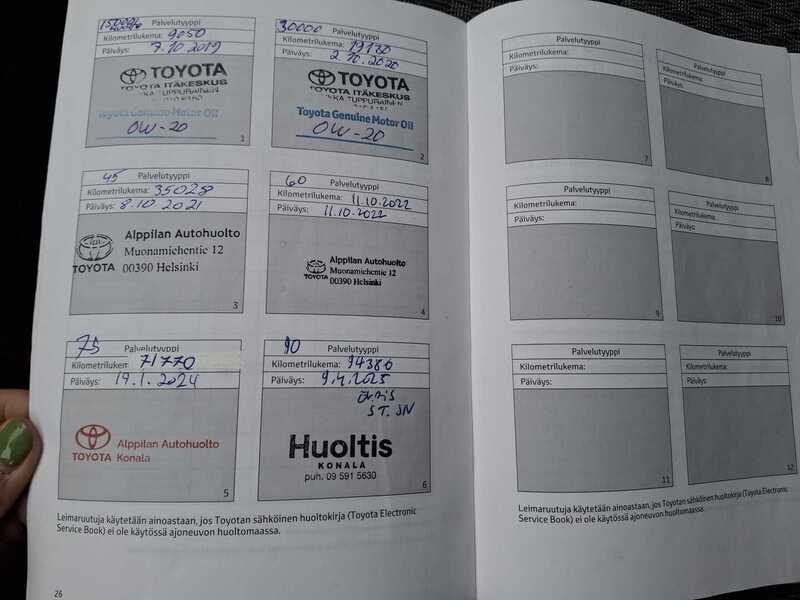 15000 Palvelutyyppi
Kilometrilukema: 9050
Päiväys: 7.10 2019
TOYOTA
TOYOTA ITÄKESKUS
Toyota Genuine Motor Oil
OW-20
1
30000 Palvelutyyppi
Kilometrilukema: 19130
Päiväys: 2.10.2020
TOYOTA
TOYOTA ITÄKESKUS
Toyota Genuine Motor Oil
OW-20
2
45 Palvelutyyppi
Kilometrilukema: 35028
Päiväys: 8.10 2021
TOYOTA
Alppilan Autohuolto
Muonamiehentie 12
00390 Helsinki
3
60 Palvelutyyppi
Kilometrilukema: 11.10.2022
Päiväys: 11.10.2022
TOYOTA
Alppilan Autohuolto
Muonamiehentie 12
00390 Helsinki
4
75 Palvelutyyppi
Kilometrilukem 71770
Päiväys: 19.1.2024
TOYOTA
Alppilan Autohuolto
Konala
5
90 Palvelutyyppi
Kilometrilukema: 94386
Päiväys: 9.4.2025
ST. SN
Huoltis
KONALA
puh. 09 591 5630
6
Leimaruutuja käytetään ainoastaan, jos Toyotan sähköinen huoltokirja (Toyota Electronic
Service Book) ei ole käytössä ajoneuvon huoltomaassa.
26
Palvelutyyppi
Kilometrilukema:
Päiväys:
7
Palvelutyyppi
Kilometrilukema:
Päiväys:
8
Palvelutyyppi
Kilometrilukema:
Päiväys:
9
Palvelutyyppi
Kilometrilukema:
Päiväys:
10
Palvelutyyppi
Kilometrilukema:
Päiväys:
11
Palvelutyyppi
Kilometrilukema:
Päiväys:
12
Leimaruutuja käytetään ainoastaan, jos Toyotan sähköinen huoltokirja (Toyota Electronic
Service Book) ei ole käytössä ajoneuvon huoltomaassa.